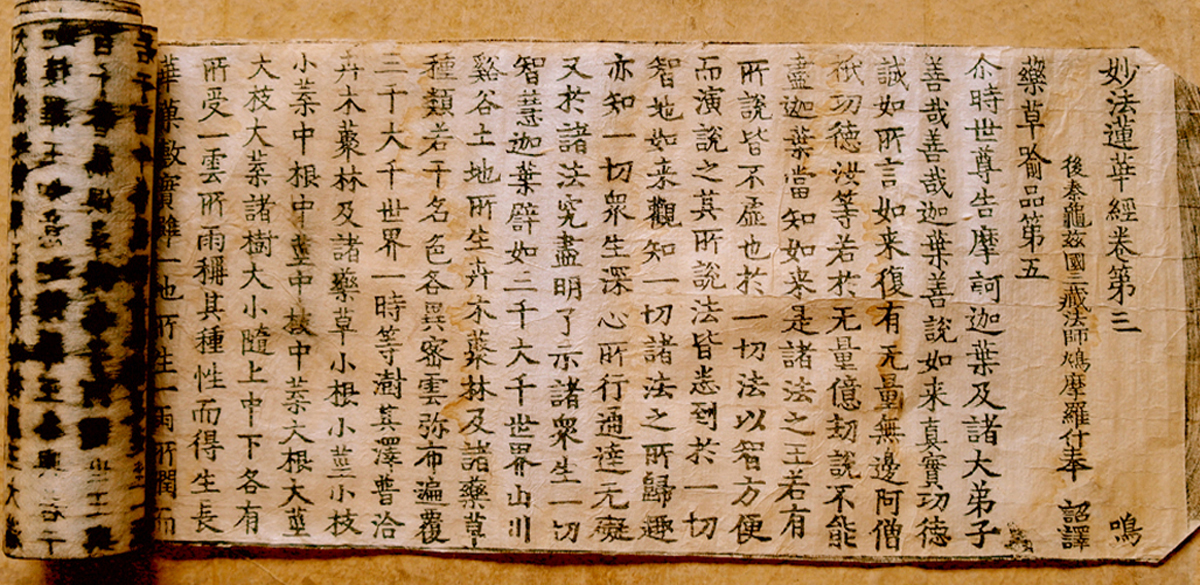 妙法蓮華經卷第三 鳴
後秦龜茲國三藏法師鳩摩羅什奉 詔譯
藥草喻品第五
尒時世尊告摩訶迦葉及諸大弟子
善哉善哉迦葉善說如来真實功德
誠如所言如来復有无量無邊阿僧
祇功德汝等若於无量億劫說不能
盡迦葉當知如来是諸法之王若有
所說皆不虛也於一切法以智方便
而演說之其所說法皆悉到於一切
智地如来觀知一切諸法之所歸趣
亦知一切衆生深心所行通達无礙
又於諸法究盡明了示諸衆生一切
智慧迦葉譬如三千大千世界山川
谿谷土地所生卉木藂林及諸藥草
種類若干名色各異密雲弥布遍覆
三千大千世界一時等澍其澤普洽
卉木藂林及諸藥草小根小莖小枝
小葉中根中莖中枝中葉大根大莖
大枝大葉諸樹大小隨上中下各有
所受一雲所雨稱其種性而得生長
華菓敷實雖一地所生一雨所潤而